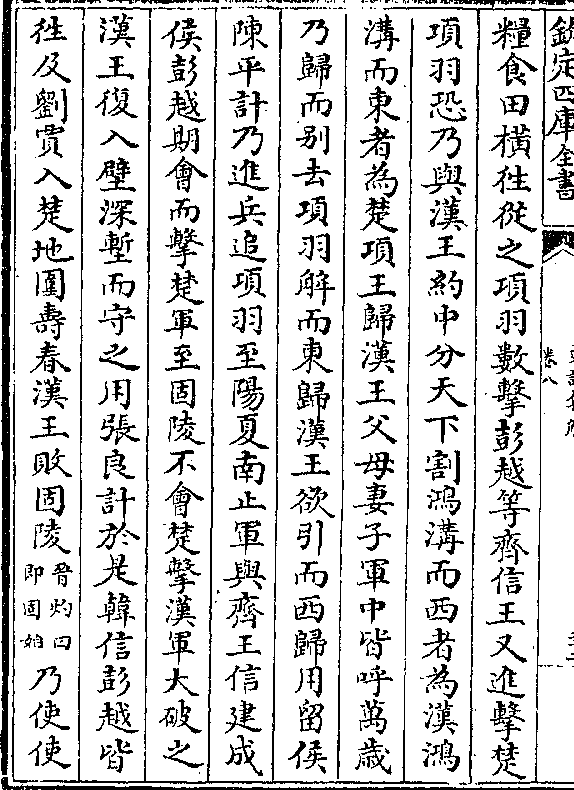 欽定四庫全書
卷八
糧食田橫往從之項羽數擊彭越等齊信王又進擊楚
項羽恐乃與漢王約中分天下割鴻溝而西者為漢鴻
溝而東者為楚項王歸漢王父母妻子軍中皆呼萬歲
乃歸而别去項羽解而東歸漢王欲引而西歸用留侯
陳平計乃進兵追項羽至陽夏南止軍與齊王信建成
侯彭越期會而擊楚軍至固陵不會楚擊漢軍大破之
漢王復入壁深塹而守之用張良計於是韓信彭越皆
往及劉賈入楚地圍壽春漢王敗固陵晉灼曰即固始乃使使